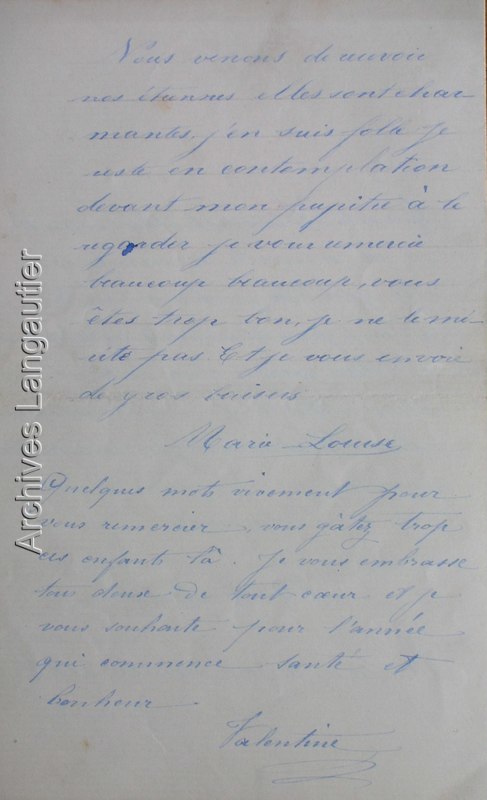 Nous venons de recevoir
nos étrennes elles sont char
mantes, j'en suis folle je
reste en contemplation
devant mon pupitre à le
regarder je vous remercie
beaucoup beaucoup, vous
êtes trop bon, je ne le mé-
rite pas Et je vous envoie
de gros baisers
Marie-Louise
Quelques mots vivement pour
vous remercier, vous gâtez trop
ces enfants là. Je vous embrasse
tous deux de tout cœur et je
vous souhaite pour l'année
qui commence santé et
bonheur
Valentine
Archives Langautier